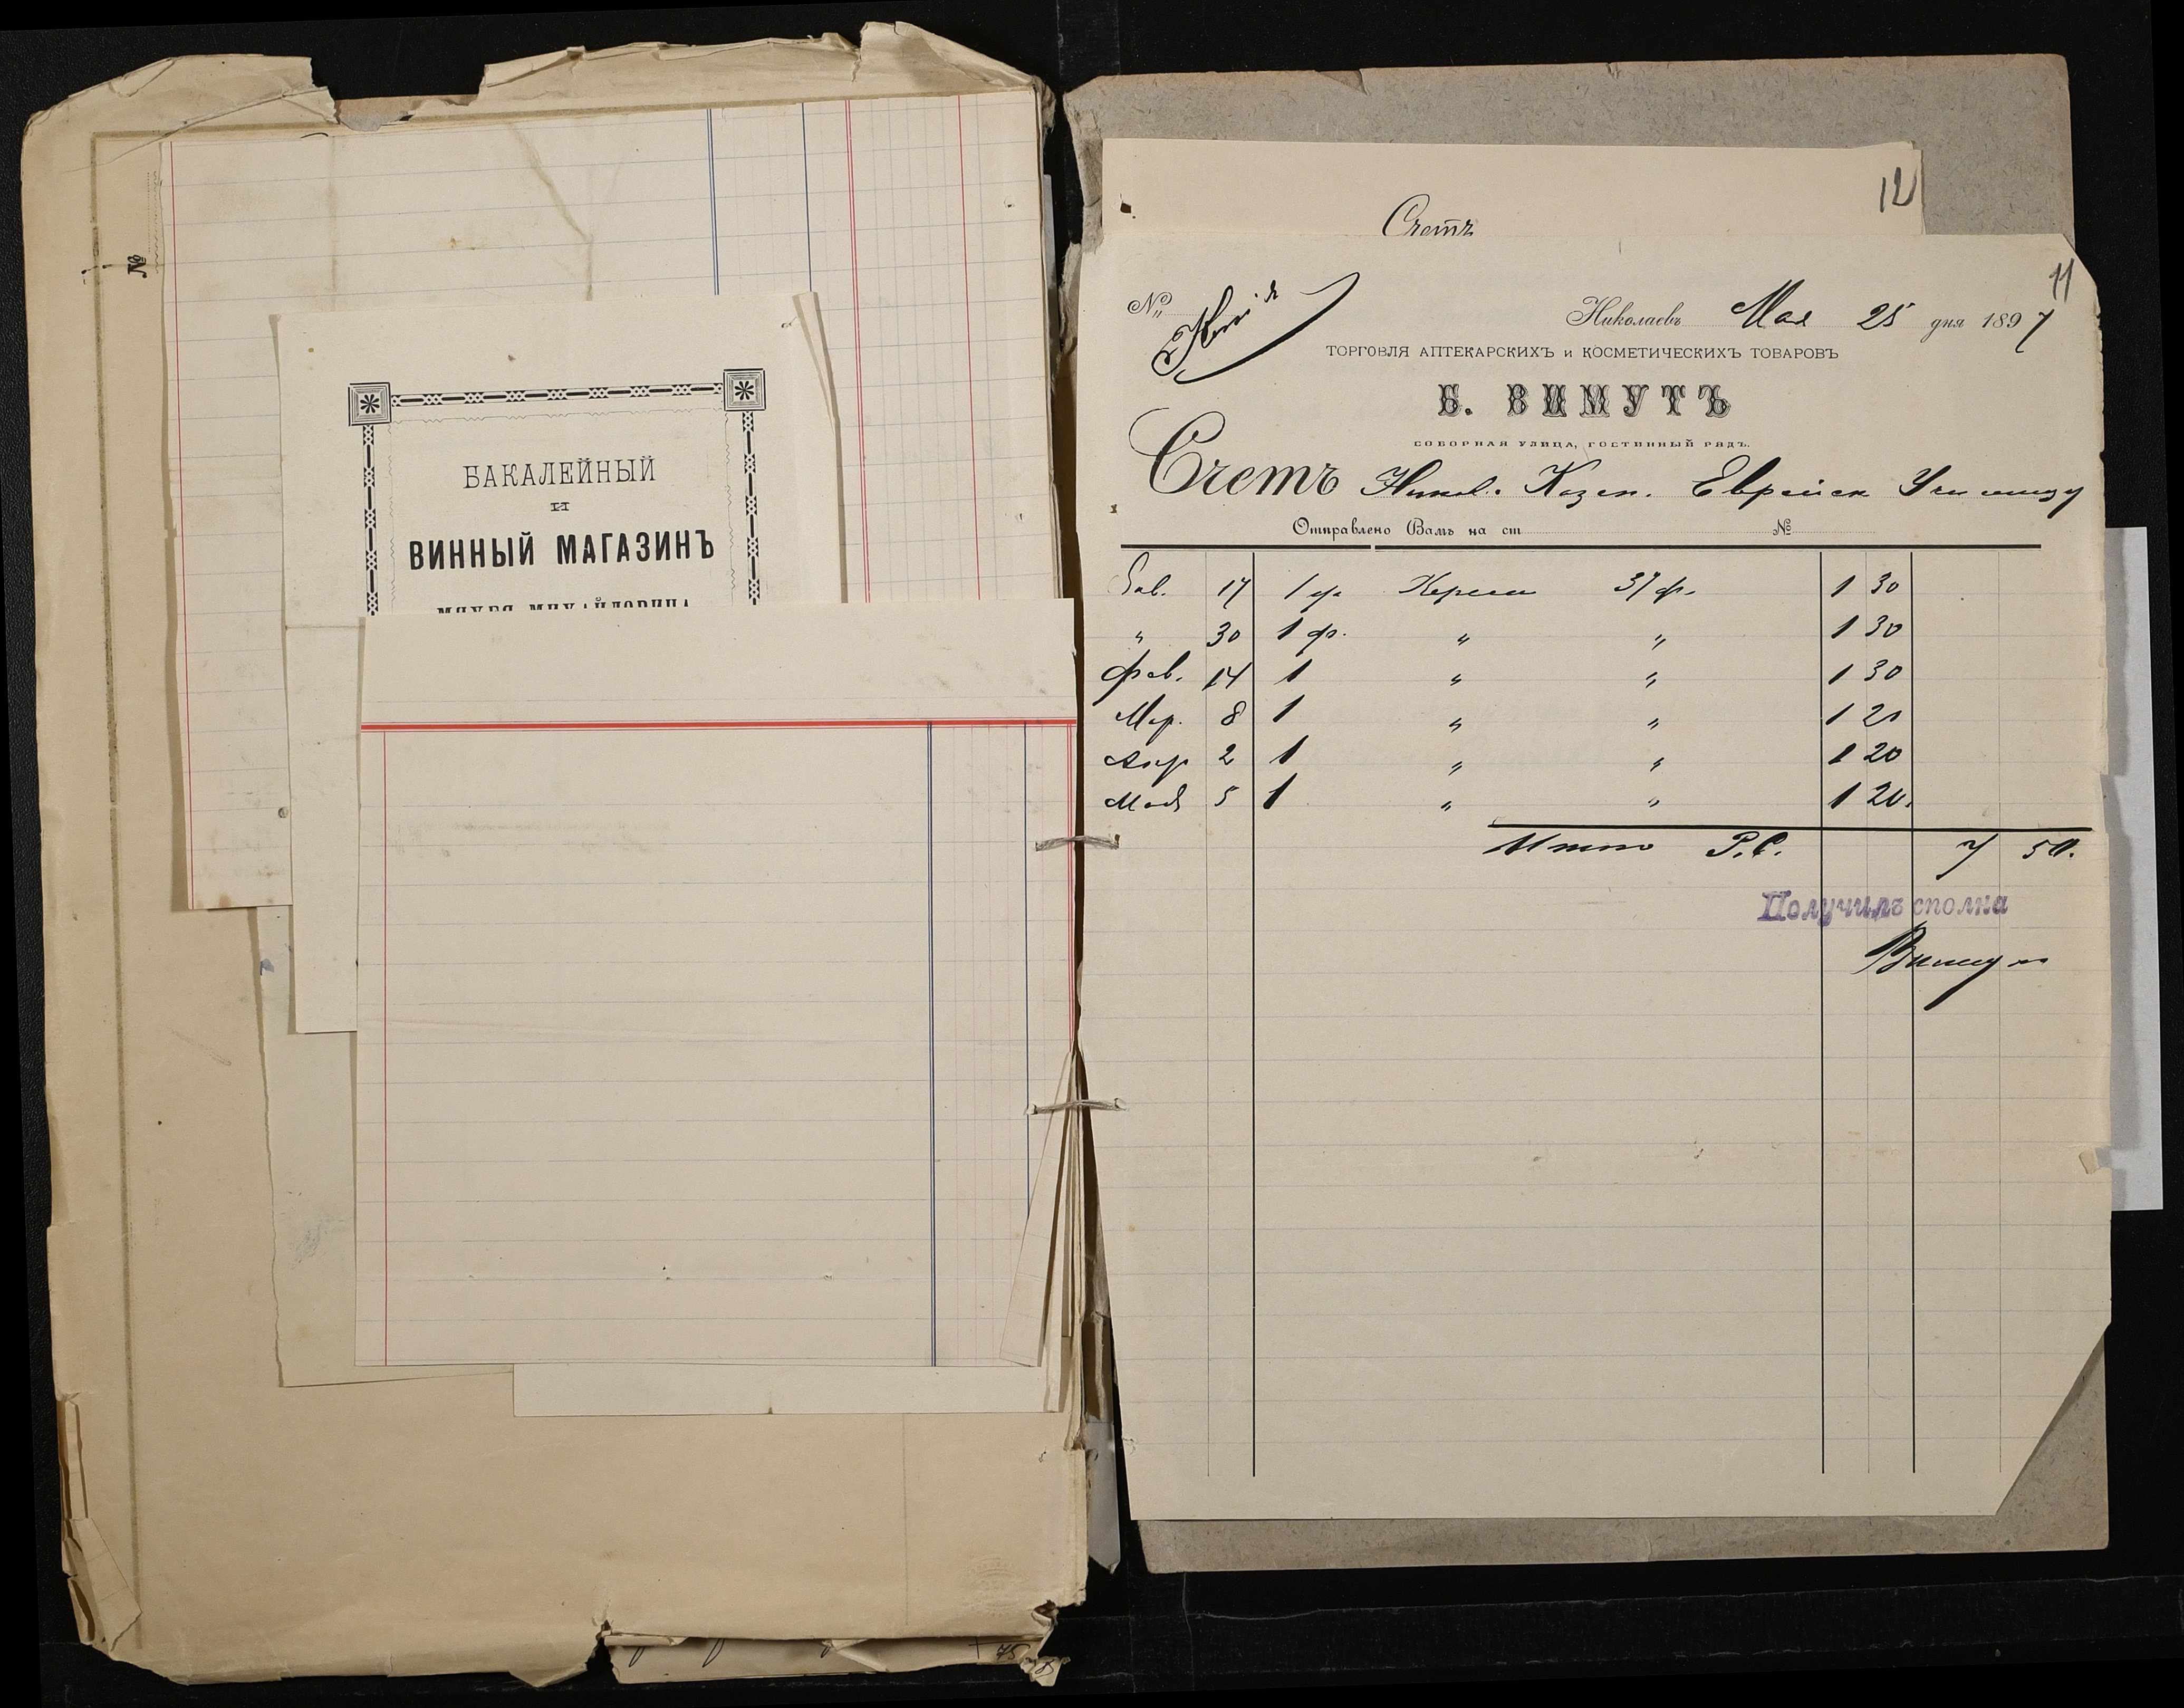 №
БАКАЛЕЙНЫЙ
И
ВИННЫЙ МАГАЗИНЪ
12
Счетъ
11
№
Николаевъ Мая 25 дня 1897
ТОРГОВЛЯ АПТЕКАРСКИХЪ и КОСМЕТИЧЕСКИХЪ ТОВАРОВЪ
Б. ВИМУТЪ
СОБОРНАЯ УЛИЦА, ГОСТИННЫЙ РЯДЪ.
Счетъ Никол. Казен. Еврейск Училищу
Отправлено Вамъ на ст № 
17 1 37 ф. 1 30
" 30 1 ф. " " 1 30
Фев. 14 1 " " 1 30
Мар. 8 1 " " 1 20
Апр 2 1 " " 1 20
Мая 5 1 " " 1 20.
Итого Р.С. 7 50.
Получилъ сполна
Вимутъ
75